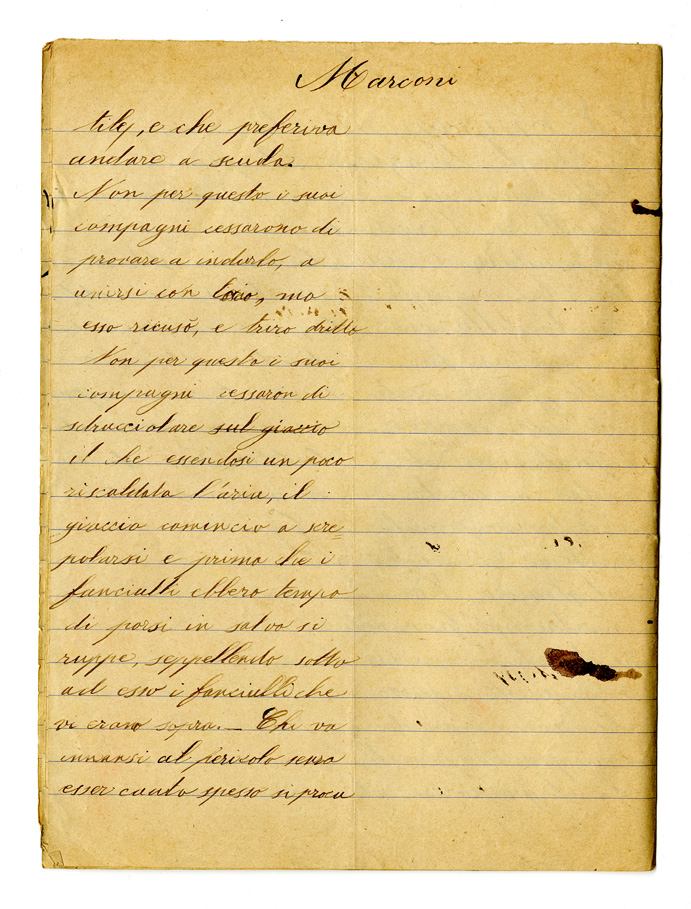 Marconi
tile, e che preferiva
andare a scuola.
Non per questo i suoi
compagni cessarono di
provare a indurlo, a
unirsi con loro, ma
esso ricusò, e tirò dritto
Non per questo i suoi
compagni cessaron di
sdrucciolare sul giaccio
il che essendosi un poco
riscaldata l'aria, il
giaccio comincio a scre=
polarsi e prima che i
fanciulli ebbero tempo
di porsi in salvo si
ruppe, seppellendo sotto
ad esso i fanciulli che
vi erano sopra. — Chi va
innansi al pericolo senza
esser cauto spesso si procu